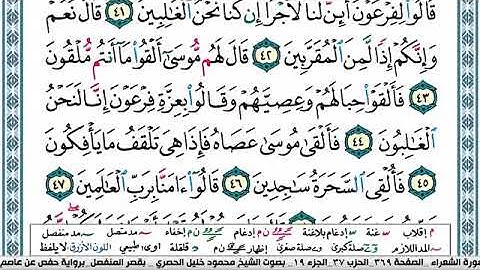 قَالُوا۟ لِفِرْعَوْنَ أَئِنَّ لَنَا لَأَجْرًا إِن كُنَّا نَحْنُ ٱلْغَٰلِبِينَ ٤١ قَالَ نَعَمْ
وَإِنَّكُمْ إِذًا لَّمِنَ ٱلْمُقَرَّبِينَ ٤٢ قَالَ لَهُم مُّوسَىٰٓ أَلْقُوا۟ مَآ أَنتُم مُّلْقُونَ
٤٣ فَأَلْقَوْا۟ حِبَالَهُمْ وَعِصِيَّهُمْ وَقَالُوا۟ بِعِزَّةِ فِرْعَوْنَ إِنَّا لَنَحْنُ
ٱلْغَٰلِبُونَ ٤٤ فَأَلْقَىٰ مُوسَىٰ عَصَاهُ فَإِذَا هِىَ تَلْقَفُ مَا يَأْفِكُونَ
٤٥ فَأُلْقِىَ ٱلسَّحَرَةُ سَٰجِدِينَ ٤٦ قَالُوٓا۟ ءَامَنَّا بِرَبِّ ٱلْعَٰلَمِينَ ٤٧
م إقلاب س غنة س إدغام بلاغنة ن م إدغام ن م إخفاء مد متصل مد منفصل
مد اللازم صلة كبرى صلة صغرى إظهار ن م قلقلة اوى طبيعي اللون الأزرق لا يلفظ
سورة الشعراء _ الصفحة ٣٦٩_ الحزب ٣٧_ الجزء ١٩ _ بصوت الشيخ محمود خليل الحصري _ بقصر المنفصل _ برواية حفص عن عاصم